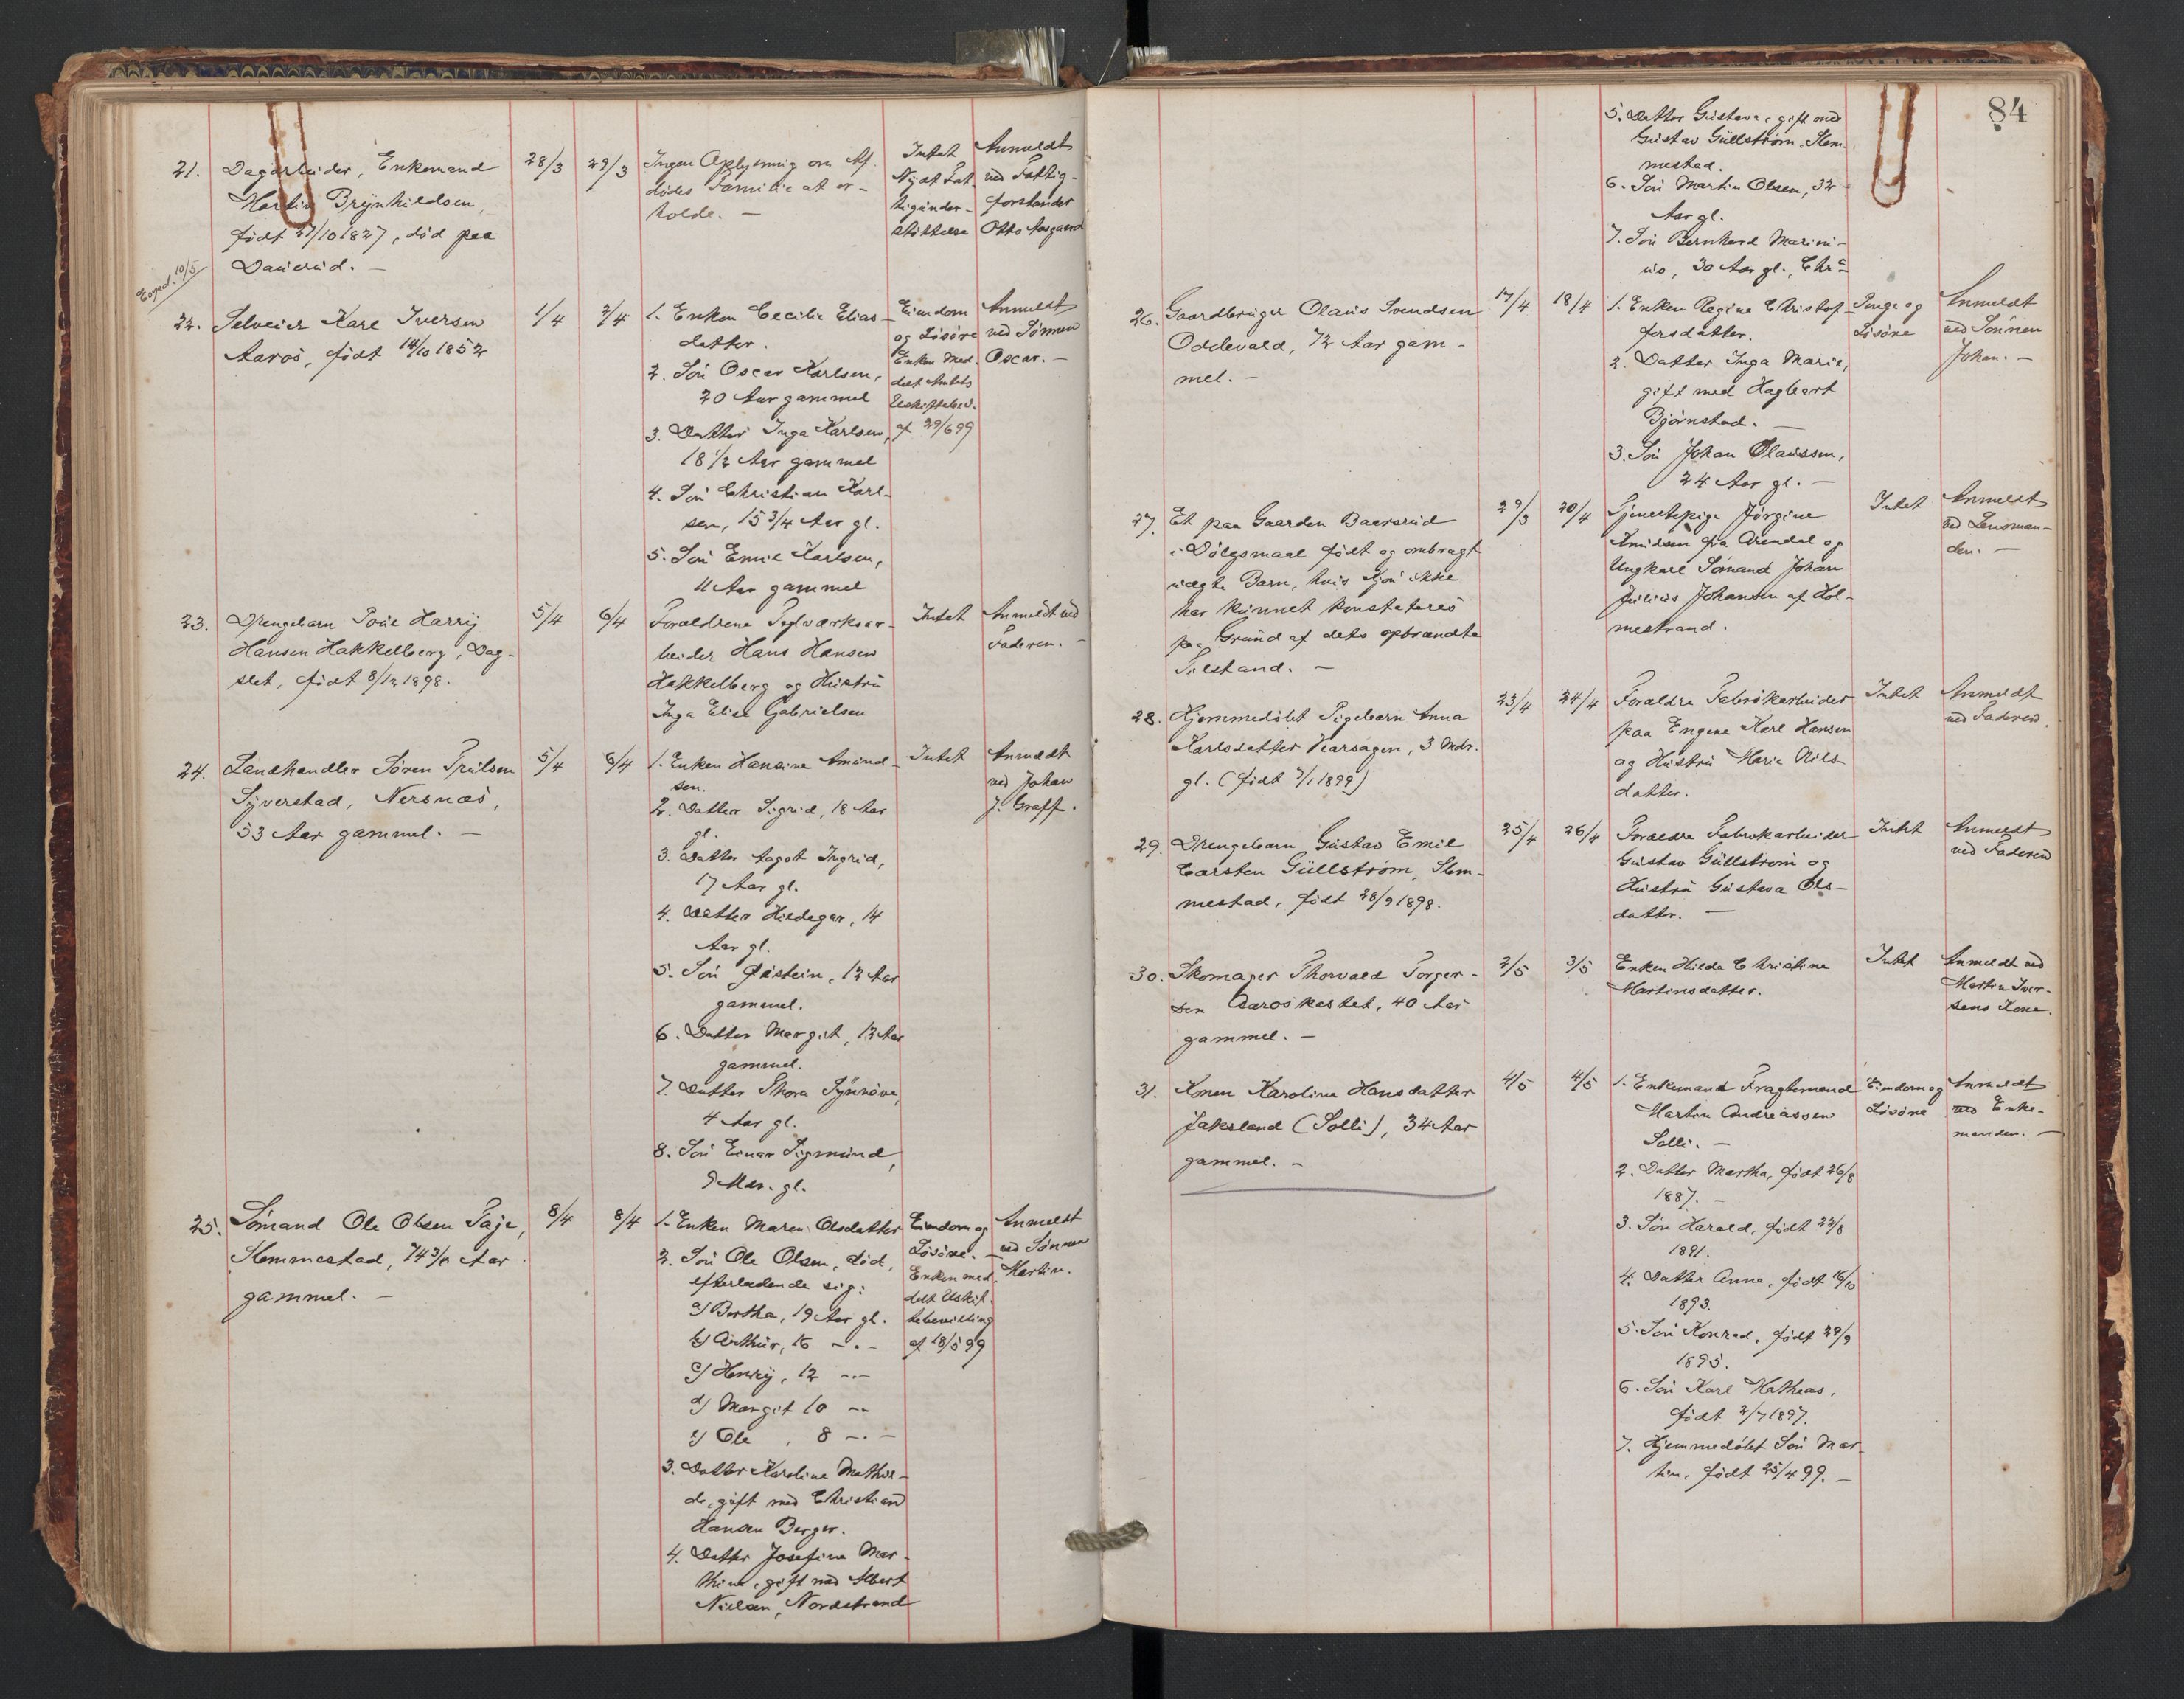 21.
Dagarbeider, Enkemand
Martin Brynhildsen,
født 27/10 1827, død paa
Dauerud. –
28/3
29/3
Ingen Oplysning om Af-
dødes Familie at er-
holde. –
Intet
Nydt Fat-
tigunder-
støttelse
Anmeldt
ved Fattig-
forstander
Otto Aasgaard
Exped. 10/5
22.
Selveier Karl Iversen
Aaros, født 14/10 1852
1/4
2/4
1. Enken Cecilie Elias-
datter.
2. Søn Oscar Karlsen,
20 Aar gammel
3. Datter Inga Karlsen,
18 1/2 Aar gammel
4. Søn Christian Karl-
sen, 15 3/4 Aar gl.
5. Søn Emil Karlsen,
11 Aar gammel
Eiendom
og Løsøre
Enken med-
delt Amtets
Uskiftebev.
af 29/6 99
Anmeldt
ved Sønnen
Oscar. –
23.
Drengebarn Harry
Hansen Hakkelberg, Dag-
slet, født 8/12 1898.
5/4
6/4
Forældrene Teglværksar-
beider Hans Hansen
Hakkelberg og Hustru
Inga Elise Gabrielsen
Intet
Anmeldt ved
Faderen. –
24.
Landhandler Søren Trulsen
Syverstad, Nersnæs,
53 Aar gammel. –
5/4
6/4
1. Enken Hansine Amund-
sen.
2. Datter Sigrid, 18 Aar
gl.
3. Datter Aagot Ingrid,
17 Aar gl.
4. Datter Hildegar, 14
Aar gl.
5. Søn Øistein, 12 Aar
gammel.
6. Datter Margit, 12 Aar
gammel.
7. Datter Thora Synnøve,
4 Aar gl.
8. Søn Einar Sigmund,
9 Mdr. gl.
Intet
Anmeldt
ved Johan
J. Graff.
25.
Sømand Ole Olsen Taje,
Slemmestad, 74 3/4 Aar
gammel. –
8/4
8/4
1. Enken Maren Olsdatter
2. Søn Ole Olsen, død,
efterladende sig:
a) Bertha, 19 Aar gl.
b) Arthur, 16 –"–
c) Henry, 12 –"–
d) Margit 10 –"–
e) Ole, 8 –"–
3. Datter Karoline Mathil-
de, gift med Christian
Hansen Berger.
4. Datter Josefine Mar-
thine, gift med Albert
Nielsen, Nordstrand
Eiendom og
Løsøre. –
Enken med-
delt Uskif-
tebevilling
af 18/5 99
Anmeldt
ved Sønnen
Martin.
84
5. Datter Gustava, gift med
Gustav Güllstrøm, Slem-
mestad.
6. Søn Martin Olsen, 32
Aar gl.
7. Søn Bernhard Marini-
us, 30 Aar gl., Chra
26.
Gaardbruger Olaus Svendsen
Oddevald, 72 Aar gam-
mel. –
17/4
18/4
1. Enken Regine Christof-
fersdatter.
2. Datter Inga Marie,
gift med Hagbart
Bjørnstad. –
3. Søn Johan Olaussen,
24 Aar gl. –
Penge og
Løsøre
Anmeldt
ved Sønnen
Johan. –
27.
Et paa Gaarden Baarsrud
i Dølgsmaal født og ombragt
uægte Barn, hvis Kjøn ikke
har kunnet konstateres
paa Grund af dets opbrændte
Tilstand. –
29/3
20/4
Tjenestepige Jørgine
Knudsen fra Arendal og
Ungkarl Sømand Johan
Julius Johansen af Hol-
mestrand.
Intet
Anmeldt
ved Lensman-
den. –
28.
Hjemmedøbt Pigebarn Anna
Karlsdatter, 3 Mdr.
gl. (født 7/1 1899)
23/4
24/4
Forældre Fabrikarbeider
paa Engene Karl Hansen
og Hustru Marie Nils-
datter.
Intet
Anmeldt
ved Faderen.
29.
Drengebarn Gustav Emil
Carsten Güllstrøm, Slem-
mestad, født 28/9 1898.
25/4
26/4
Forældre Fabrikarbeider
Gustav Güllstrøm og
Hustru Gustava Ols-
datter. –
Intet
Anmeldt
ved Faderen
30.
Skomager Thorvald Torger-
sen Aaroskastet, 40 Aar
gammel. –
2/5
3/5
Enken Hilda Christine
Martinsdatter.
Intet
Anmeldt ved
Martin Iver-
sens Kone.
31.
Konen Karoline Hansdatter
Jaksland (Solli), 34 Aar
gammel. –
4/5
4/5
1. Enkemand Fragtemand
Martin Andreassen
Solli. –
2. Datter Martha, født 26/8
1887. –
3. Søn Harald, født 22/8
1891.
4. Datter Anna, født 16/10
1893.
5. Søn Konrad, født 29/9
1895.
6. Søn Karl Mathias,
født 2/7 1897.
7. Hjemmedøbt Søn Mar-
tin, født 25/4 99. –
Eiendom og
Løsøre
Anmeldt
ved Enke-
manden. –